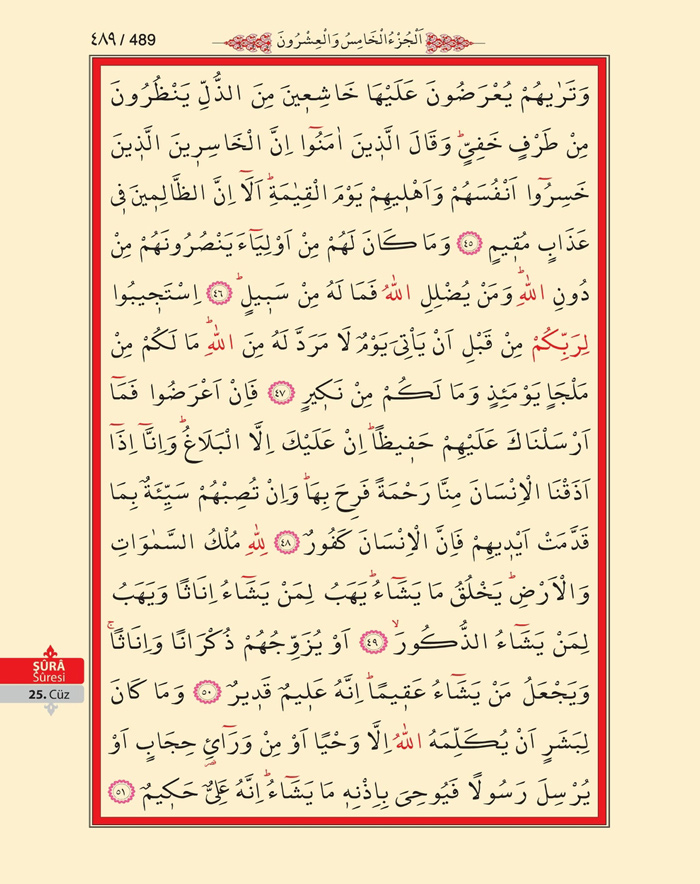 ٤٨٩ / 489
اَلْجُزْءُ الْخَامِسُ وَالْعِشْرُونَ
وَتَرٰيهُمْ يُعْرَضُونَ عَلَيْهَا خَاشِعٖينَ مِنَ الذُّلِّ يَنْظُرُونَ
مِنْ طَرْفٍ خَفِيٍّؕ وَقَالَ الَّذٖينَ اٰمَنُٓوا اِنَّ الْخَاسِرٖينَ الَّذٖينَ
خَسِرُٓوا اَنْفُسَهُمْ وَاَهْلٖيهِمْ يَوْمَ الْقِيٰمَةِؕ اَلَٓا اِنَّ الظَّالِمٖينَ فٖى
عَذَابٍ مُقٖيمٍ ﴿٤٥﴾ وَمَا كَانَ لَهُمْ مِنْ اَوْلِيَٓاءَ يَنْصُرُونَهُمْ مِنْ
دُونِ اللّٰهِؕ وَمَنْ يُضْلِلِ اللّٰهُ فَمَا لَهُ مِنْ سَبٖيلٍؕ ﴿٤٦﴾ اِسْتَجٖيبُوا
لِرَبِّكُمْ مِنْ قَبْلِ اَنْ يَاْتِىَ يَوْمٌ لَا مَرَدَّ لَهُ مِنَ اللّٰهِؕ مَا لَكُمْ مِنْ
مَلْجَاٍ يَوْمَئِذٍ وَمَا لَكُمْ مِنْ نَكٖيرٍ ﴿٤٧﴾ فَاِنْ اَعْرَضُوا فَمَٓا
اَرْسَلْنَاكَ عَلَيْهِمْ حَفٖيظًاؕ اِنْ عَلَيْكَ اِلَّا الْبَلَاغُؕ وَاِنَّٓا اِذَٓا
اَذَقْنَا الْاِنْسَانَ مِنَّا رَحْمَةً فَرِحَ بِهَاؕ وَاِنْ تُصِبْهُمْ سَيِّئَةٌ بِمَا
قَدَّمَتْ اَيْدٖيهِمْ فَاِنَّ الْاِنْسَانَ كَفُورٌ ﴿٤٨﴾ لِلّٰهِ مُلْكُ السَّمٰوَاتِ
وَالْاَرْضِؕ يَخْلُقُ مَا يَشَٓاءُؕ يَهَبُ لِمَنْ يَشَٓاءُ اِنَاثًا وَيَهَبُ
لِمَنْ يَشَٓاءُ الذُّكُورَۙ ﴿٤٩﴾ اَوْ يُزَوِّجُهُمْ ذُكْرَانًا وَاِنَاثًاۚ
وَيَجْعَلُ مَنْ يَشَٓاءُ عَقٖيمًاؕ اِنَّهُ عَلٖيمٌ قَدٖيرٌ ﴿٥٠﴾ وَمَا كَانَ
لِبَشَرٍ اَنْ يُكَلِّمَهُ اللّٰهُ اِلَّا وَحْيًا اَوْ مِنْ وَرَٓائِ حِجَابٍ اَوْ
يُرْسِلَ رَسُولًا فَيُوحِىَ بِاِذْنِهٖ مَا يَشَٓاءُؕ اِنَّهُ عَلِىٌّ حَكٖيمٌ ﴿٥١﴾
ŞÛRÂ
Sûresi
25. Cüz